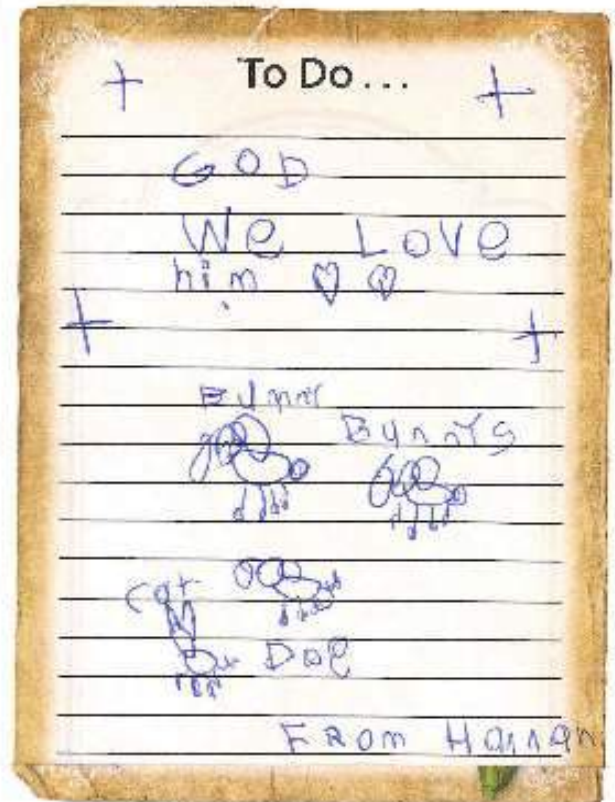 To Do...
GOD
We Love
him
Bunny
Bunnys
Cat
Dog
From Hannah